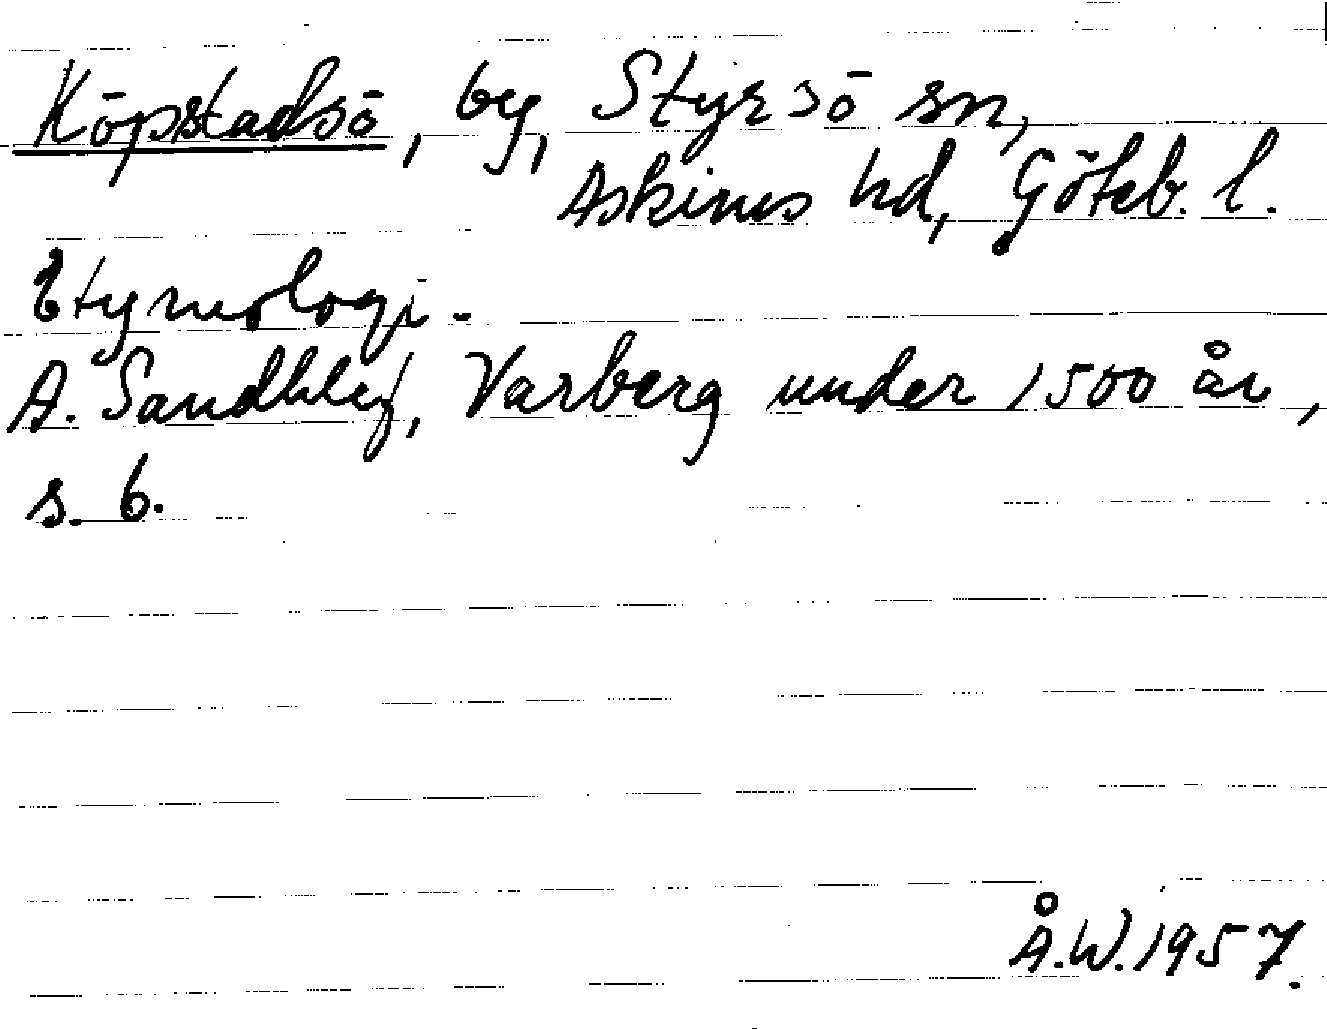 Köpstadsö, by, Styrsö sn,
Askims hd, Göteb. l.
Etymologi.
A. Sandklef, Varberg under 1500 år,
s. 6.
Å.W. 1957.